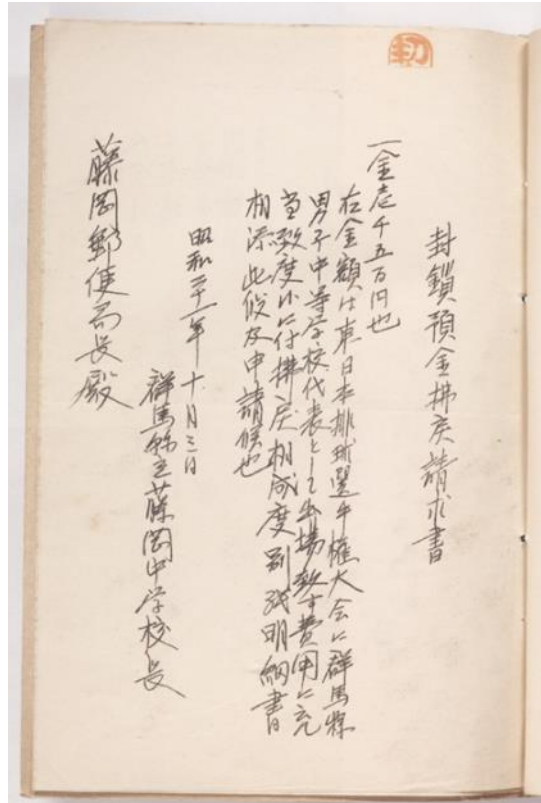 封鎖預金拂戻請求書
一金壱千五百円也
右金額は東日本排球選手権大会に群馬縣
男子中等学校代表として出場致す費用に充
当致度候に付拂戻相成度別紙明細書
相添此段及申請候也
昭和二十一年十月三日
群馬縣立藤岡中学校長
藤岡郵便局長殿